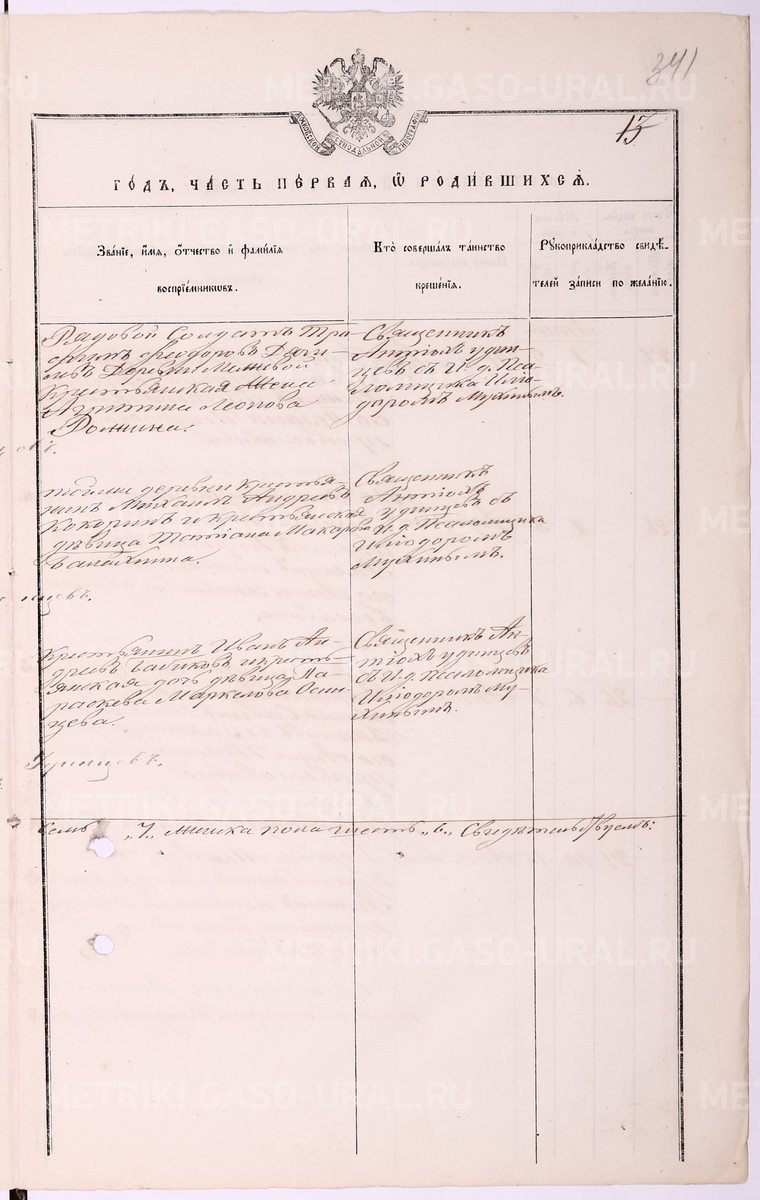 341
13
ГОДЪ, ЧАСТЬ ПЕРВАЯ, Ѡ РОДИВШИХСЯ.
Званіе, имя, отчество и фамилія
воспріемниковъ.
Кто совершалъ таинство
крещенія.
Рукоприкладство свидѣ-
телей записи по желанію.
Рядовой Солдатъ Тро-
фимъ Ѳеодоровъ
Деревни
Крестьянская Жена
Леонова
Священникъ
Антіохъ Удин-
цевъ съ И. д. Пса-
ломщика Иліо-
доромъ Мухинымъ.
той же деревни крестья-
нинъ Михаилъ Андреевъ
Кокоринъ и крестьянская
дѣвица Татіана Макарова
Священникъ
Антіохъ
Удинцевъ съ
И. д. Псаломщика
Иліодоромъ
Мухинымъ.
Крестьянинъ Иванъ Ан-
дреевъ и кресть-
янская дочь дѣвица Па-
раскева Маркелова Осин-
цева.
Священникъ Ан-
тіохъ Удинцевъ
съ И. д. Псаломщика
Иліодоромъ Му-
хинымъ.
семь „7„ женска пола шесть „6„ Свидѣтельствуемъ:
METRIKI.GASO-URAL.RU